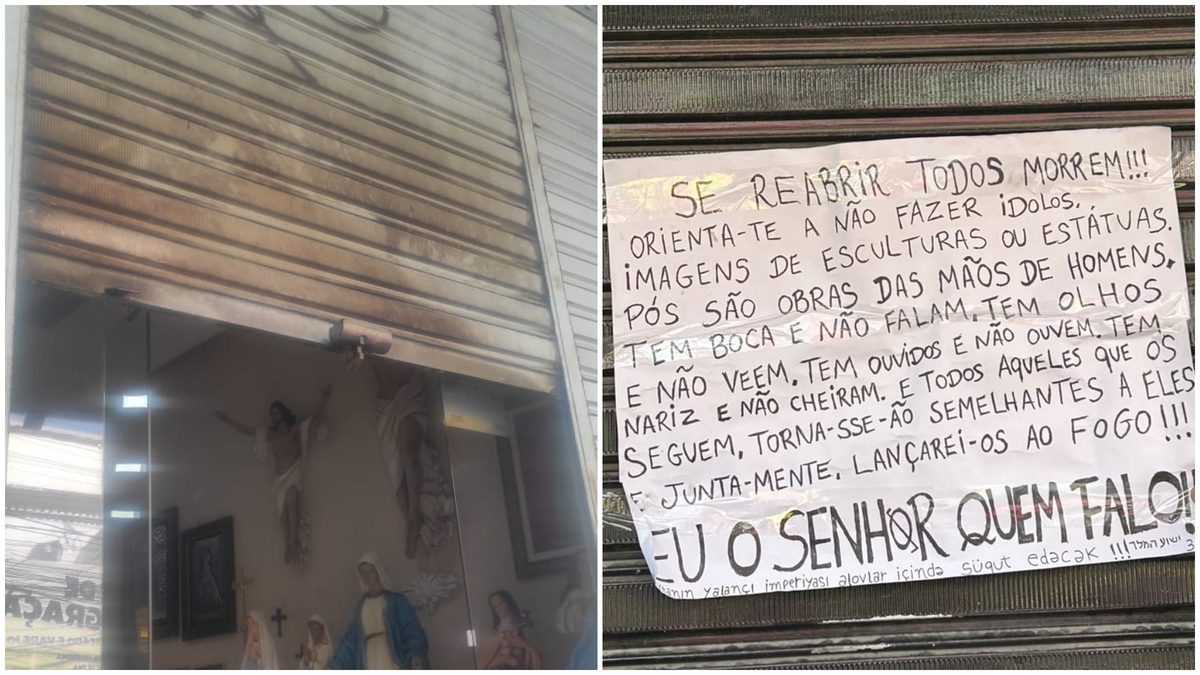 DE
GRAÇA
E VAREJO
SE REABRIR TODOS MORREM!!!
ORIENTA-TE A NÃO FAZER iDOLOS.
iMAGENS DE ESCULTURAS OU ESTÁTUAS.
PÓS SÃO OBRAS DAS MÃOS DE HOMENS,
TEM BOCA E NÃO FALAM, TEM OLHOS
E NÃO VEEM, TEM OUVIDOS E NÃO OUVEM. TEM
NARIZ E NÃO CHEIRAM. E TODOS AQUELES QUE OS
SEGUEM, TORNA-SSE-ÃO SEMELHANTES A ELES
E JUNTA-MENTE, LANÇAREI-OS AO FOGO!!!
EU O SENHOR QUEM FALO!
yalançı imperiyası alovlar içində süqut edəcək !!!